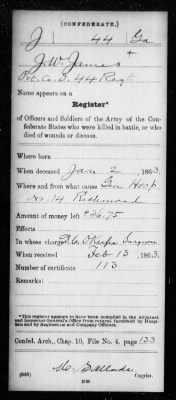 (CONFEDERATE.)
J 44 Ga
J. W. James
Pvt. Co. D. 44 Regt
Name appears on a
Register*
of Officers and Soldiers of the Army of the Confederate States who were killed in battle, or who
died of wounds or disease.
Where born
When deceased Jan 2, 1863.
Where and from what cause Gen Hosp
No. 14 Richmond
Amount of money left $36.75
Effects
In whose charge
When received Feb 13, 1863.
Number of certificate 113
Remarks:
*This register appears to have been compiled in the Adjutant
and Inspector General's Office from returns furnished by Hospitals
and by Regimental and Company Officers.
Confed. Arch., Chap. 10, File No. 4, page 133
(635)
Copyist.